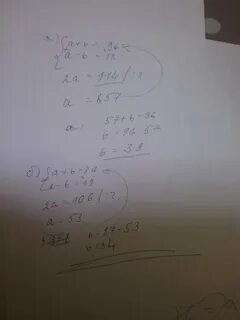 а) { a+b = 96
{ a-b = 18
2a = 114 / :2
a = 57
57+b=96
b = 96 57
b = 39
б) { a+b=87
{ a-b=19
2a=106 /:2
a=53
b=87-53
b=34